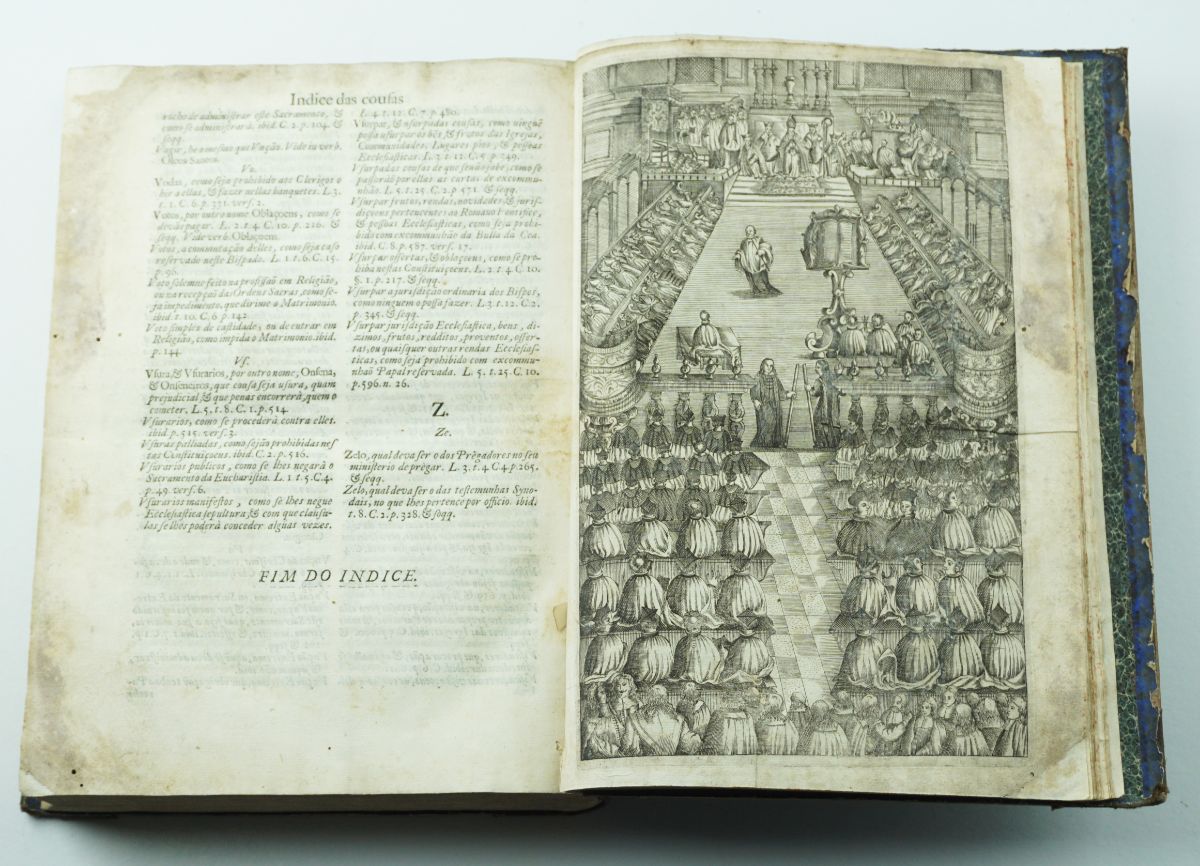 Indice das cousas
nacho de administrar este Sacramento, &
como se administrarà. ibid. C. 2. p. 104. &
seqq.
Vagar, he a mesma que Vnção. Vide in verb.
Oleos Santos.
Vo.
Vodas, como seja prohibido aos Clerigos o
hir a ellas, & fazer nellas banquetes. L. 3.
t. 1. C. 6. p. 331. vers. 2.
Votos, por outro nome Oblaçoens, como se
devão pagar. L. 2. t. 4. C. 10. p. 216. &
seqq. Vide verb. Oblaçoens.
Votos, a commutação delles, como seja caso
reservado neste Bispado. L. 1. t. 6. C. 15.
p. 96.
Voto solemne feito na profissaõ em Religião,
ou na recepção das Ordens Sacras, como se-
ja impedimento, que dirime o Matrimonio.
ibid. t. 10. C. 6. p. 142.
Voto simples de castidade, ou de entrar em
Religião, como impida o Matrimonio. ibid.
p. 144.
Vs.
Vsura, & Vsurarios, por outro nome, Onsena,
& Onseneiros, que cousa seja usura, quam
prejudicial, & que penas encorrerà, quem o
cometer. L. 5. t. 8. C. 1. p. 514.
Vsurarios, como se procederà contra elles.
ibid. p. 515. vers. 3.
Vsuras palliadas, como sejão prohibidas nes
tas Constituiçoens. ibid. C. 2. p. 516.
Vsurarios publicos, como se lhes negarà o
Sacramento da Eucharistia. L. 1. t. 5. C. 4.
p. 49. vers. 6.
Vsurarios manifestos, como se lhes negue
Ecclesiastica sepultura; & com que clausu-
las se lhes poderà conceder algũas vezes.
L. 4. t. 12. C. 7. p. 480.
Vsurpar, & usurpadas cousas, como ninguẽ
possa usurpar os bẽs, & frutos das Igrejas,
Communidades, Lugares pios, & pessoas
Ecclesiasticas. L. 3. t. 12. C. 5. p. 349.
Vsurpadas cousas de que se não sabe, como se
passarà por ellas as cartas de excommu-
nhão. L. 5. t. 25. C. 2. p. 571. & seqq.
Vsurpar frutos, rendas, novidades & juris-
diçoens pertencentes ao Romano Pontifice,
& pessoas Ecclesiasticas, como seja prohi-
bido com excommunhão da Bulla da Cea.
ibid. C. 8. p. 587. vers. 17.
Vsurpar offertas, & oblaçoens, como se pro-
hiba nestas Constituiçoens. L. 2. t. 4. C. 10.
§. 1. p. 217. & seqq.
Vsurpar a jurisdição ordinaria dos Bispos,
como ninguem o possa fazer. L. 3. t. 12. C. 2.
p. 345. & seqq.
Vsurpar jurisdição Ecclesiastica, bens, di-
zimos, frutos, redditos, proventos, offer-
tas, ou quaisquer outras rendas Ecclesias-
ticas, como seja prohibido com excommu-
nhaõ Papal reservada. L. 5. t. 25. C. 10.
p. 596. n. 26.
Z.
Ze.
Zelo, qual deva ser o dos Prègadores no seu
ministerio de prègar. L. 3. t. 4 C. 4 p. 265.
& seqq.
Zelo, qual deva ser o das testemunhas Syno-
dais, no que lhes pertence por officio. ibid.
t. 8. C. 2. p. 328. & seqq.
FIM DO INDICE.